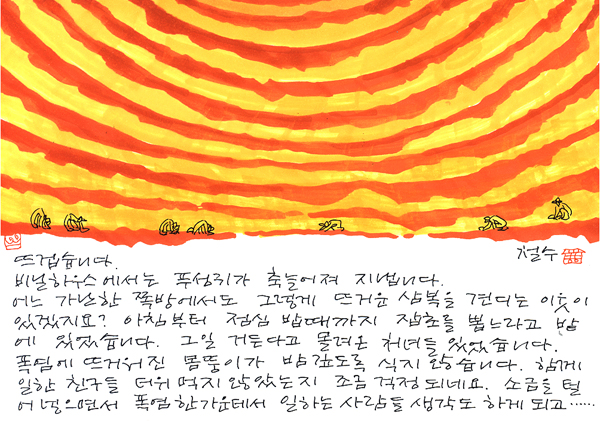 철수
뜨겁습니다.
비닐하우스에서는 푸성귀가 축늘어져 지냅니다.
어느 가난한 쪽방에서도 그렇게 뜨거운 삼복을 견디는 이웃이
있겠지요? 아침부터 점심 밥때까지 잡초를 뽑느라고 밭
에 있었습니다. 그일 거든다고 몰려온 처녀들 있었습니다.
폭염에 뜨거워진 몸뚱이가 밤깊도록 식지 않습니다. 함께
일한 친구들 더위 먹지 않았는지 조금 걱정되네요. 소금을 털
어 넣으면서 폭염 한가운데서 일하는 사람들 생각도 하게 되고……